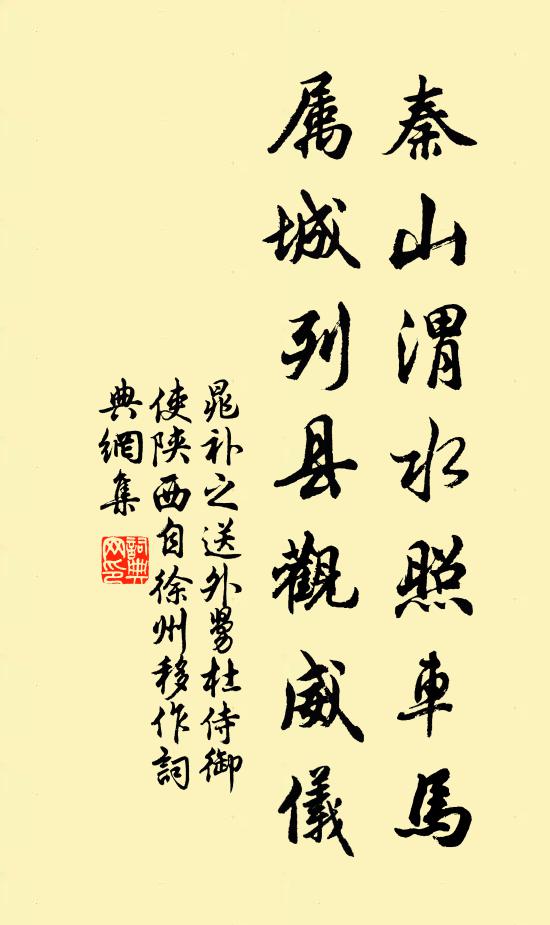 秦山渭水照車馬
属城列县觀威儀
晁补之送外舅杜侍御
使陕西自徐州移作詞
典網集
詞典
网印